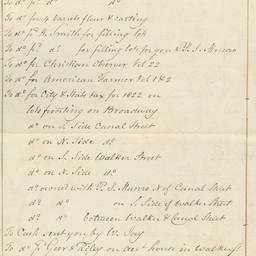 To do pd do do
To do for 4 barels flour & carting
To do pd R. Smith for filling lots
To do pd do for filling lots for you & P. J. Munro
To do for Christian Observer Vol 22
To do for American Farmer Vol 1 & 2
To do for City & State tax for 1822 on
lots fronting on Broadway
do on S. Side Canal Street
do on N. Side do
do on S. Side Walker Street
do on N. Side do
do owned with P. J. Munro N of Canal Street
do do on S. Side of Walker Street
do do between Walker & Canal Street
To Cash sent you by W. Jay
To do pd Geer & Riley on acct house in Walker St